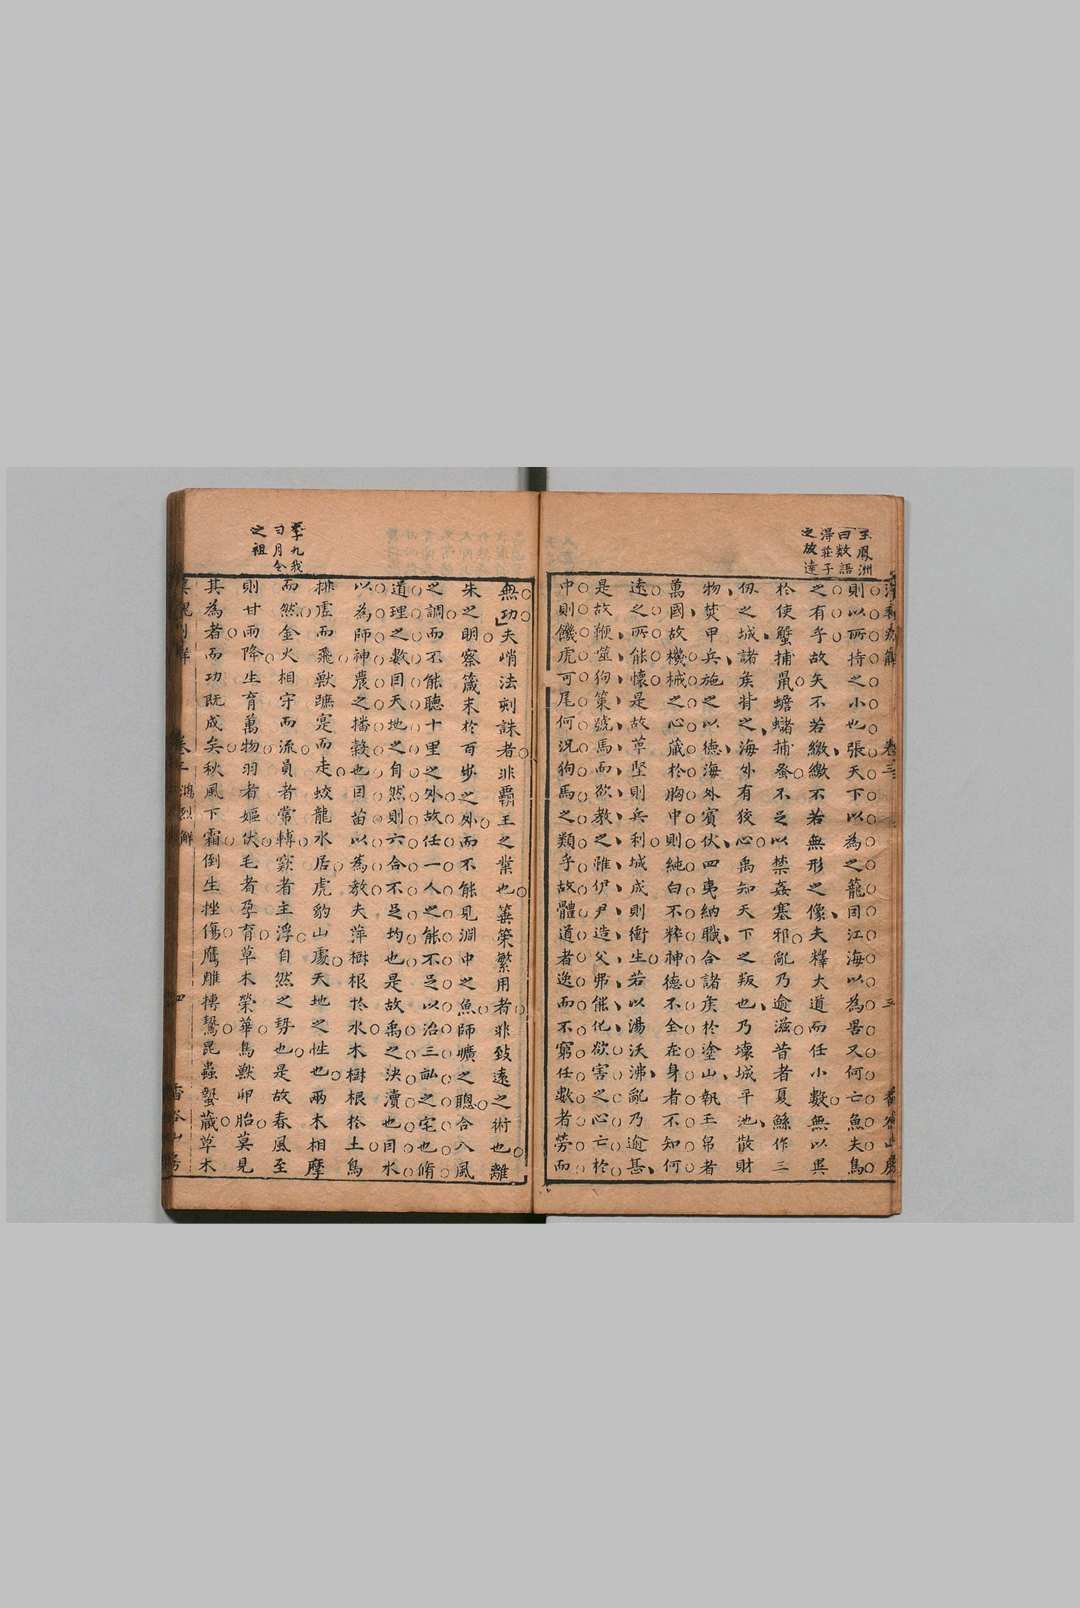 王鳳洲
曰數語
淂莊子
之放達
則以所持之小也張天下以為之籠因江海以為罟又何亡魚失鳥
之有乎故矢不若繳繳不若無形之像夫釋大道而任小數無以異
於使蟹捕鼠蟾蠩捕蚤不足以禁姦塞邪亂乃逾滋昔者夏鯀作三
仞之城諸矦背之海外有狡心禹知天下之叛也乃壞城平池散財
物焚甲兵施之以德海外賓伏四夷納職合諸矦於塗山執玉帛者
萬國故機械之心藏於胸中則純白不粹神德不全在身者不知何
遠之所能懷是故革堅則兵利城成則衝生若以湯沃沸亂乃逾甚
是故鞭噬狗策號馬而欲教之雖伊尹造父弗能化欲害之心亡於
中則饑虎可尾何況狗馬之類乎故體道者逸而不窮任數者勞而
無功夫峭法刻誅者非霸王之業也箠策繁用者非致遠之術也離
朱之明察箴末於百步之外而不能見淵中之魚師曠之聰合八風
之調而不能聽十里之外故任一人之能不足以治三畝之宅也脩
道理之數因天地之自然則六合不足均也是故禹之決瀆也因水
以為師神農之播穀也因苗以為教夫萍樹根於水木樹根於土鳥
排虛而飛獸蹠寔而走蛟龍水居虎豹山處天地之性也兩木相摩
而然金火相守而流員者常轉窾者主浮自然之勢也是故春風至
則甘雨降生育萬物羽者嫗伏毛者孕育草木榮華鳥獸卵胎莫見
其為者而功既成矣秋風下霜倒生挫傷鷹雕搏鷙昆蟲蟄藏草木
李九我
曰月令
之祖
卷三 鴻烈解
四